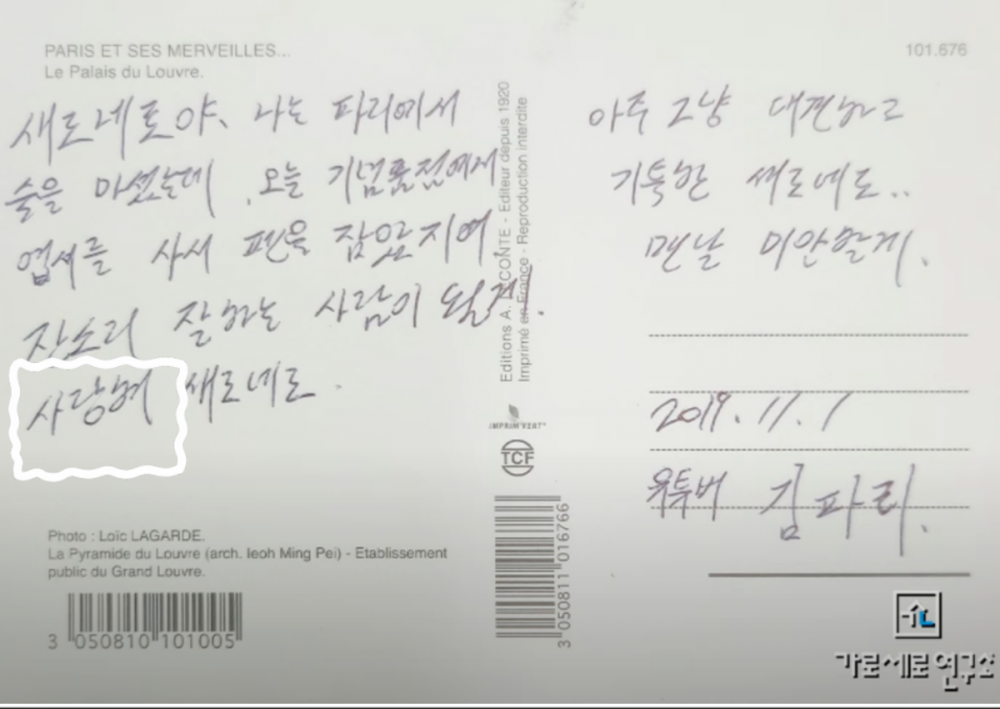 PARIS ET SES MERVEILLES...
Le Palais du Louvre.
101.676
새로네로야, 나는 파리에서
술을 마셨는데, 오늘 기념품점에서
엽서를 사서 펜을 잡았지여
잔소리 잘하는 사람이 될게!
사랑혀 새로네로.
아주 그냥 대견하고
기특한 새로네로..
맨날 미안할게.
2019. 11. 1
유투버 김파리.
Editions A. LECONTE - Editeur depuis 1920
Imprimé en France - Reproduction interdite
IMPRIM'VERT
TCF
Photo : Loïc LAGARDE.
La Pyramide du Louvre (arch. Ieoh Ming Pei) - Etablissement
public du Grand Louvre.
3 050810 101005
3 050811 016766
가로세로연구소